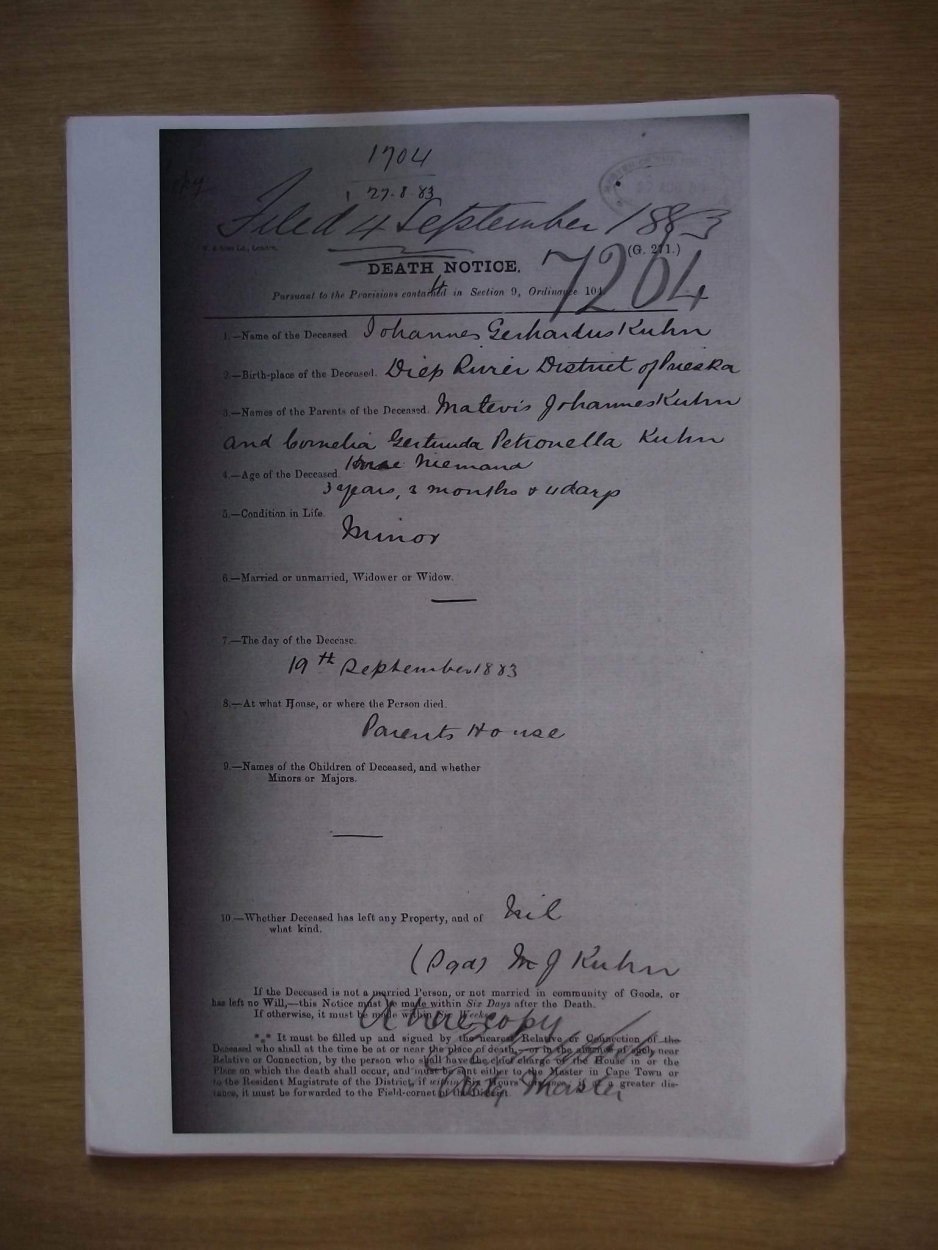 1704
27.8.83
Filed 4 September 1883
(G. 211.)
DEATH NOTICE.
7204
Pursuant to the Provisions contained in Section 9, Ordinance 104
1.—Name of the Deceased. Johannes Gerhardus Kuhn
2.—Birth-place of the Deceased. Diep Rivier District of Prieska
3.—Names of the Parents of the Deceased. Matevis Johannes Kuhn
and Cornelia Gertruida Petronella Kuhn
Niemand
4.—Age of the Deceased
3 years, 3 months & 4 days
5.—Condition in Life.
Minor
6.—Married or unmarried, Widower or Widow.
—
7.—The day of the Decease.
19th September 1883
8.—At what House, or where the Person died.
Parents House
9.—Names of the Children of Deceased, and whether
Minors or Majors.
—
10.—Whether Deceased has left any Property, and of Nil
what kind.
(Sgd) M J Kuhn
If the Deceased is not a married Person, or not married in community of Goods, or
has left no Will,—this Notice must be made within Six Days after the Death.
If otherwise, it must be made within Six Weeks.
A true copy
*** It must be filled up and signed by the nearest Relative or Connection of the
Deceased who shall at the time be at or near the place of death,—or in the absence of such near
Relative or Connection, by the person who shall have the chief charge of the House in or the
Place on which the death shall occur, and must be sent either to the Master in Cape Town or
to the Resident Magistrate of the District, if within Six Hours distance, if at a greater dis-
tance, it must be forwarded to the Field-cornet of the District.
Master